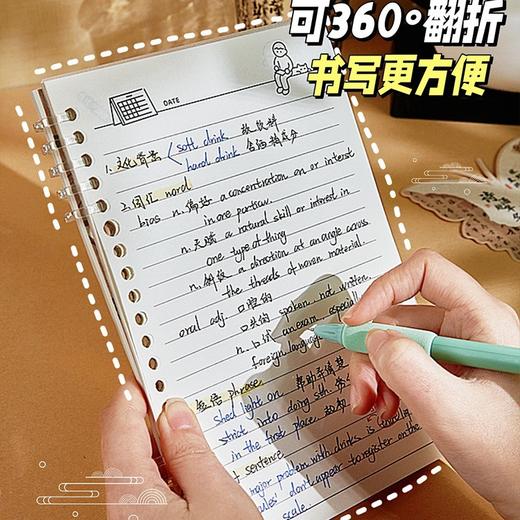 可360°翻折
书写更方便
DATE
1. 文化背景 soft drink 软饮料
hard drink 含酒精成分
2. 词汇 word
bias n. 偏故 a concentration on or interest
in one particu.
n. 天赋 a natural skill or interest in
one type of thing
n. 斜纹 a direction at an angle across
the threads of woven material.
oral adj. 口腔的
口头的 spoken, not written
n. 口试 an exam, especially
foreign language
短语 phrase
shed light on 帮助弄清楚
strict into doing sth.
in the first place
sentence
major problem with drinks is
rules' don't appear to register on the
scale.